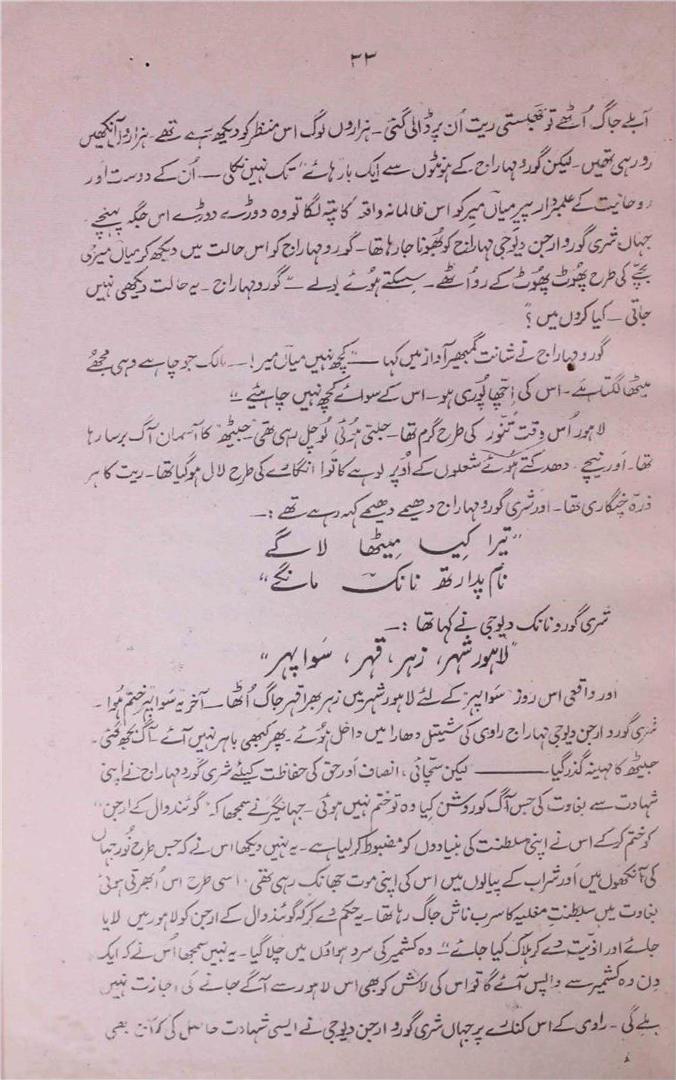 ۳۳
آبلے جاگ اُٹھے تو جھلستی ریت اُن پر ڈالی گئی۔ ہزاروں لوگ اس منظر کو دیکھ رہے تھے۔ ہزاروں آنکھیں
رو رہی تھیں۔ لیکن گورو مہاراج کے ہونٹوں سے ایک بار ”ہائے“ تک نہیں نکلی — اُن کے دوست اور
روحانیت کے علمبردار پیر میاں میر کو اس ظالمانہ واقعہ کا پتہ لگا تو وہ دوڑے دوڑے اس جگہ پہنچے
جہاں شری گورو ارجن دیوجی مہاراج کو بھُونا جا رہا تھا۔ گورو مہاراج کو اس حالت میں دیکھ کر میاں میر جی
بچّے کی طرح پھُوٹ پھُوٹ کے رو اُٹھے۔ سِسکتے ہوئے بولے — ”گورو مہاراج۔ یہ حالت دیکھی نہیں
جاتی — کیا کروں میں؟“
گورو مہاراج نے شانت گمبھیر آواز میں کہا — ”کچھ نہیں میاں میر! — مالک جو چاہے وہی مجھے
میٹھا لگتا ہے۔ اس کی اِچھا پُوری ہو۔ اس کے سوائے کچھ نہیں چاہیئے۔“
لاہور اُس وقت تنُور کی طرح گرم تھا۔ جلتی ہُوئی لُو چل رہی تھی۔ جیٹھ کا آسمان آگ برسا رہا
تھا۔ اَور نیچے دھدکتے ہوئے شعلوں کے اُوپر لوہے کا توا انگارے کی طرح لال ہو گیا تھا۔ ریت کا ہر
ذرّہ چنگاری تھا۔ اور شری گورو مہاراج دھیمے دھیمے کہہ رہے تھے :—
”تیرا کِیا مِیٹھا لاگے
نام پدارتھ نانک مانگے“
شری گورو نانک دیوجی نے کہا تھا :—
”لاہور شہر، زہر، قہر، سَوا پہر“
اور واقعی اس روز ”سَوا پہر“ کے لئے لاہور شہر میں زہر بھرا قہر جاگ اُٹھا — آخر یہ سَوا پہر ختم ہُوا۔
شری گورو ارجن دیوجی مہاراج راوی کی شیتل دھارا میں داخل ہوئے۔ پھر کبھی باہر نہیں آئے۔ آگ بجھ گئی۔
جیٹھ کا مہینہ گذر گیا — لیکن سچائی، انصاف اَور حق کی حفاظت کیلئے شری گورو مہاراج نے اپنی
شہادت سے بغاوت کی جس آگ کو روشن کیا وہ تو ختم نہیں ہوئی۔ جہانگیر نے سمجھا کہ ”گوئندوال کے ارجن“
کو ختم کر کے اس نے اپنی سلطنت کی بنیادوں کو مضبوط کر لیا ہے۔ یہ نہیں دیکھا اس نے کہ جس طرح نُور جہاں
کی آنکھوں میں اَور شراب کے پیالوں میں اس کی اپنی موت جھانک رہی تھی، اسی طرح اس اُبھرتی ہوئی
بغاوت میں سلطنتِ مغلیہ کا سرب ناش جاگ رہا تھا۔ یہ حکم دے کر کہ گوئندوال کے ارجن کو لاہور میں لایا
جائے اور اذیّت دے کر ہلاک کیا جائے“۔ وہ کشمیر کی سرد ہواؤں میں چلا گیا۔ یہ نہیں سمجھا اُس نے کہ ایک
دِن وہ کشمیر سے واپس آئے گا تو اس کی لاش کو بھی اس لاہور سے آگے جانے کی اجازت نہیں
ملے گی۔ راوی کے اس کنارے پر جہاں شری گورو ارجن دیوجی نے ایسی شہادت حاصل کی